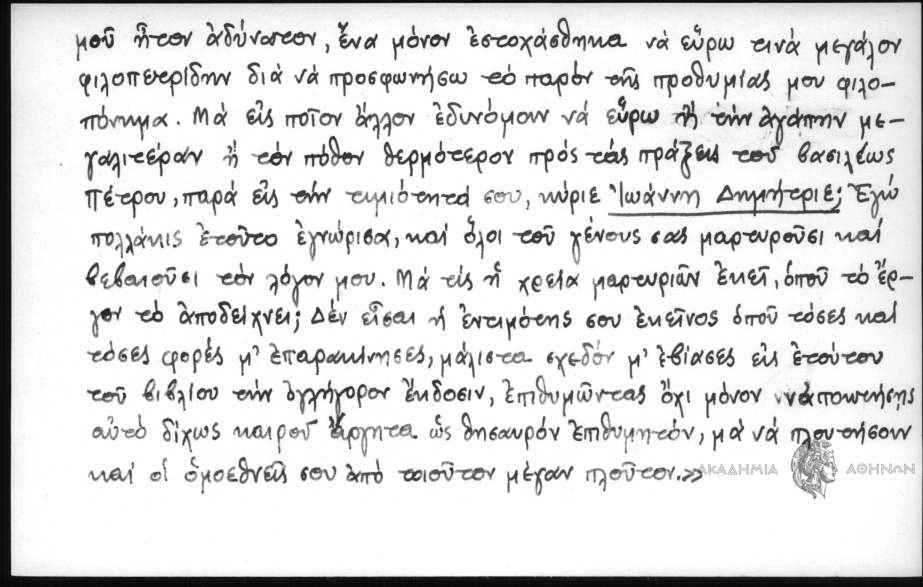 μοῦ ἦτον ἀδύνατον, ἕνα μόνον ἐστοχάσθηκα νὰ εὕρω τινὰ μεγάλον
φιλοπετρίδην διὰ νὰ προσφωνήσω τὸ παρὸν τῆς προθυμίας μου φιλο-
πόνημα. Μὰ εἰς ποῖον ἄλλον ἐδυνόμουν νὰ εὕρω ἢ τὴν ἀγάπην με-
γαλιτέραν ἢ τὸν πόθον θερμότερον πρὸς τὰς πράξεις τοῦ βασιλέως
Πέτρου, παρὰ εἰς τὴν τιμιότητά σου, κύριε Ἰωάννη Δημήτριε; Ἐγὼ
πολλάκις ἐτοῦτο ἐγνώρισα, καὶ ὅλοι τοῦ γένους σας μαρτυροῦσι καὶ
βεβαιοῦσι τὸν λόγον μου. Μὰ τίς ἡ χρεία μαρτυριῶν ἐκεῖ, ὁποῦ τὸ ἔρ-
γον τὸ ἀποδείχνει; Δὲν εἶσαι ἡ ἐντιμότης σου ἐκεῖνος ὁποῦ τόσες καὶ
τόσες φορὲς μ' ἐπαρακίνησες, μάλιστα σχεδὸν μ' ἐβίασες εἰς ἐτούτου
τοῦ βιβλίου τὴν ὀγλήγορον ἔκδοσιν, ἐπιθυμῶντας ὄχι μόνον νὰ ἀποκτήσῃς
αὐτὸ δίχως καιροῦ ἄργητα ὡς θησαυρὸν ἐπιθυμητόν, μὰ νὰ πλουτήσουν
καὶ οἱ ὁμοεθνεῖς σου ἀπὸ τοιοῦτον μέγαν πλοῦτον.»
ΑΚΑΔΗΜΙΑ ΑΘΗΝΩΝ